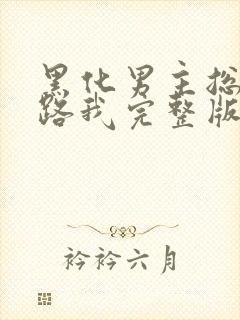 黑化男主总
路我完整版
衿衿六月